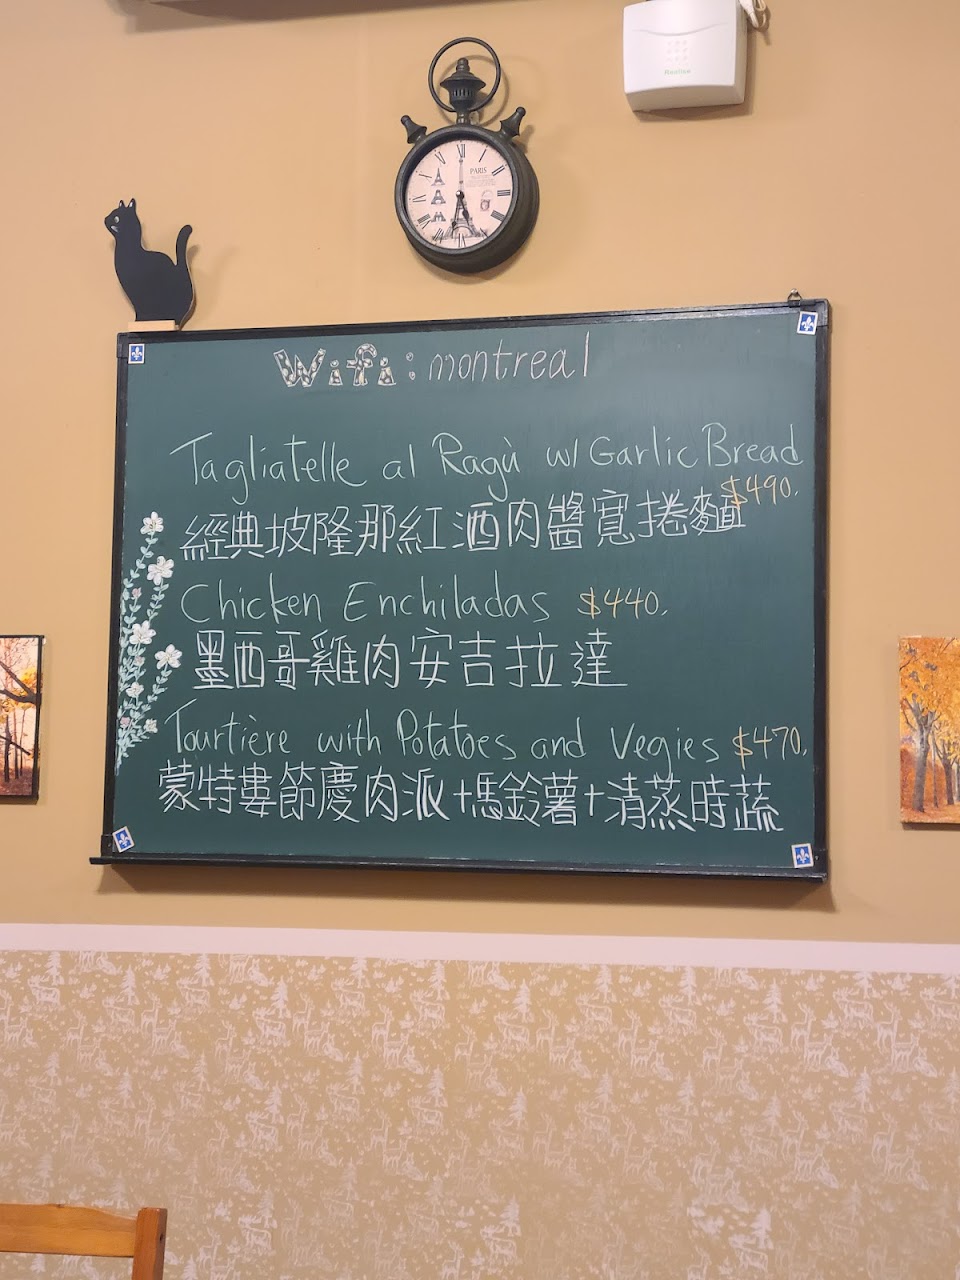 Reebee
PARIS
Wifi: montreal
Tagliatelle al Ragù w/ Garlic Bread
$490.
經典坡隆那紅酒肉醬寬捲麵
Chicken Enchiladas $440.
墨西哥雞肉安吉拉達
Tourtière with Potatoes and Vegies $470.
蒙特婁節慶肉派+馬鈴薯+清蒸時蔬